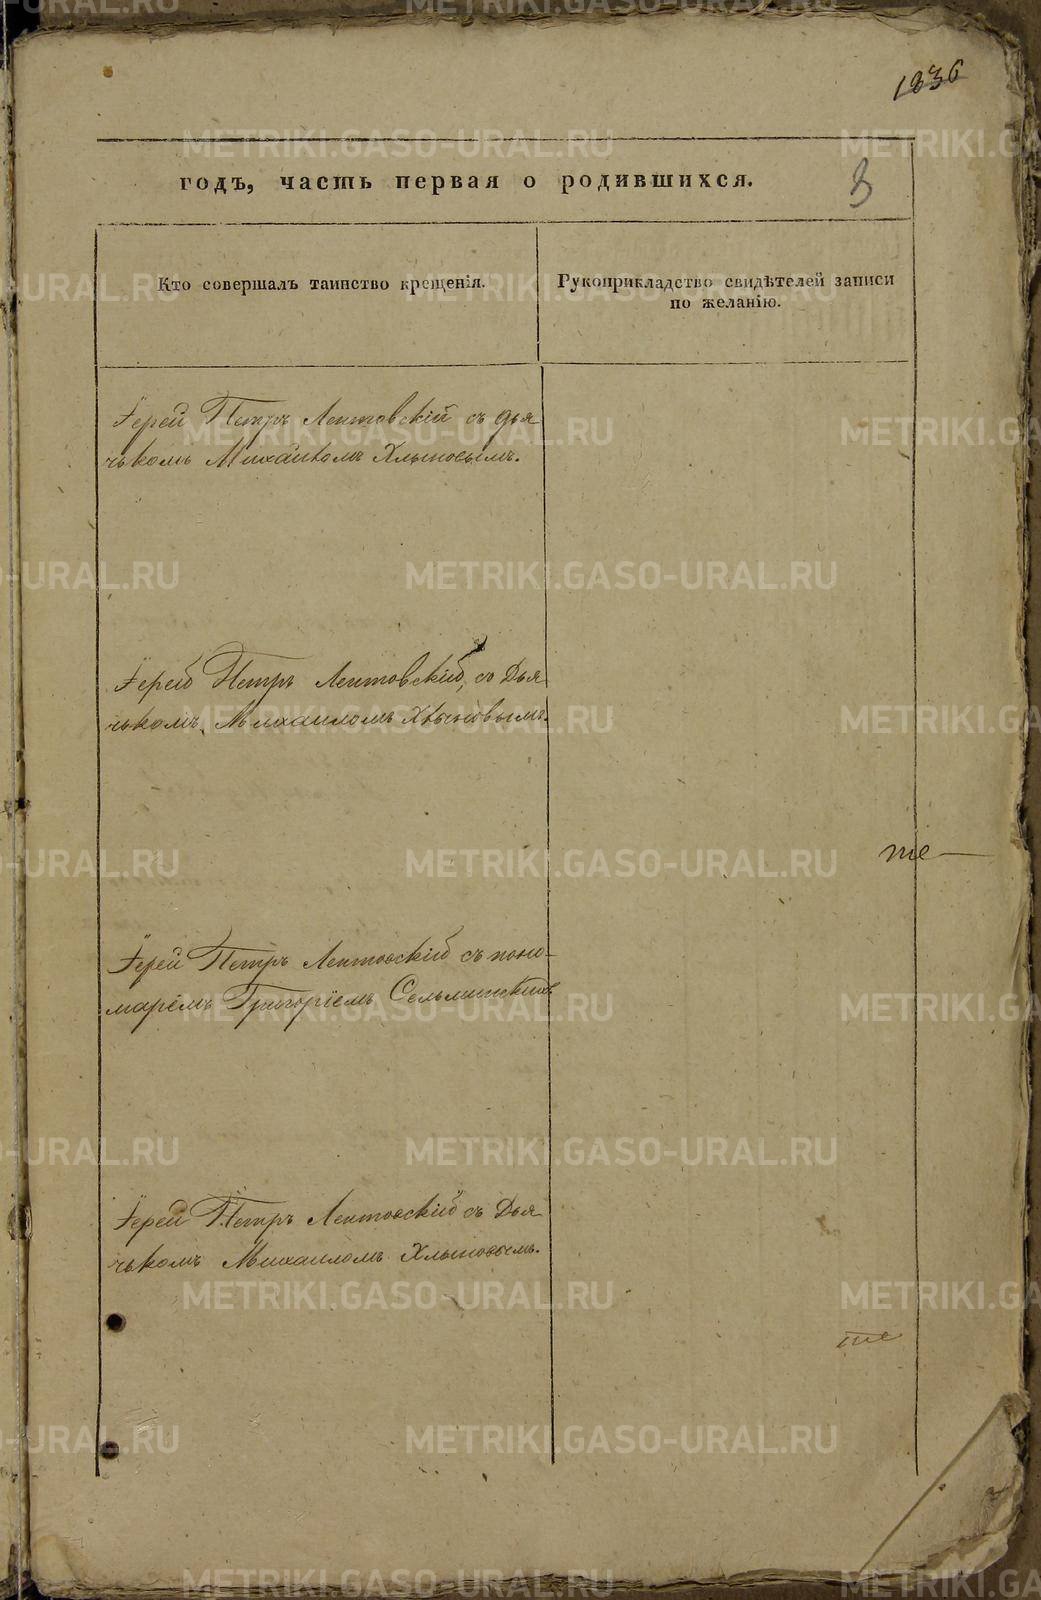 1836
годъ, часть первая о родившихся.
3
Кто совершалъ таинство крещенія.
Рукоприкладство свидѣтелей записи
по желанію.
Іерей Петръ Лептовскій съ дья
чькомъ Михаиломъ Хлыновымъ.
Іерей Петръ Лептовскій, съ Дья
чькомъ Михаиломъ Хлыновымъ.
те
Іерей Петръ Лептовскій съ поно-
маремъ Григоріемъ
Іерей Петръ Лептовскій съ Дья
чькомъ Михаиломъ Хлыновымъ.
METRIKI.GASO-URAL.RU